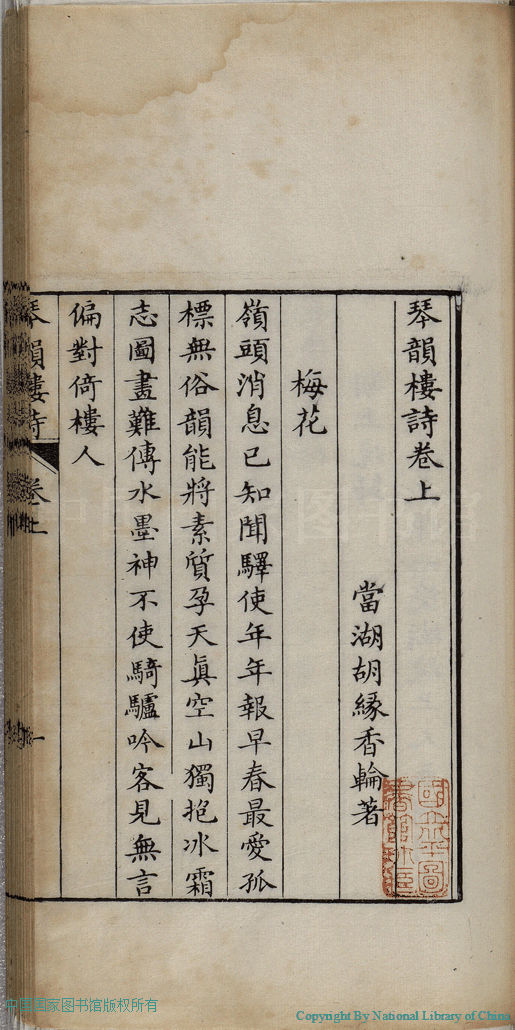 琴韻樓詩卷上
當湖胡緣香輪著
梅花
嶺頭消息已知聞驛使年年報早春最愛孤
標無俗韻能將素質孕天真空山獨抱冰霜
志圖畫難傳水墨神不使騎驢吟客見無言
偏對倚樓人
琴韻樓詩 卷上 一
國立北平圖書館收藏
中国国家图书馆版权所有
Copyright By National Library of China